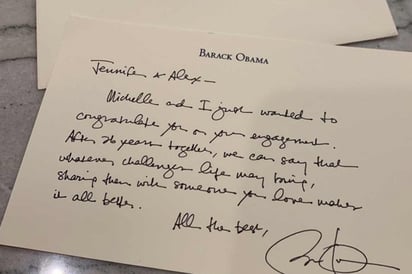 BARACK OBAMA
Jennifer & Alex—
Michelle and I just wanted to
congratulate you on your engagement.
After 26 years together, we can say that
whatever challenges life may bring,
sharing them with someone you love makes
it all better.
All the best,